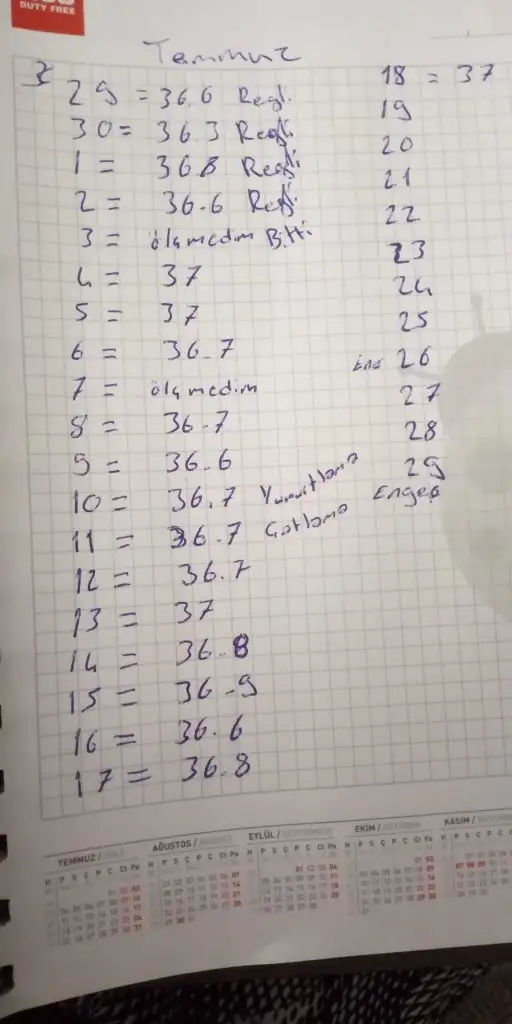 DUTY FREE
Temmuz
29 = 36.6 Regl.
30 = 36.3 Regli
1 = 36.8 Regli
2 = 36.6 Regli
3 = ölçmedim Bitti
4 = 37
5 = 37
6 = 36.7
7 = ölçmedim
8 = 36.7
9 = 36.6
10 = 36.7 Yumurtlama
11 = 36.7 Çatlama
12 = 36.7
13 = 37
14 = 36.8
15 = 36.9
16 = 36.6
17 = 36.8
18 = 37
19
20
21
22
23
24
25
26
27
28
29
TEMMUZ /
AĞUSTOS /
EYLÜL /
EKİM /
KASIM /